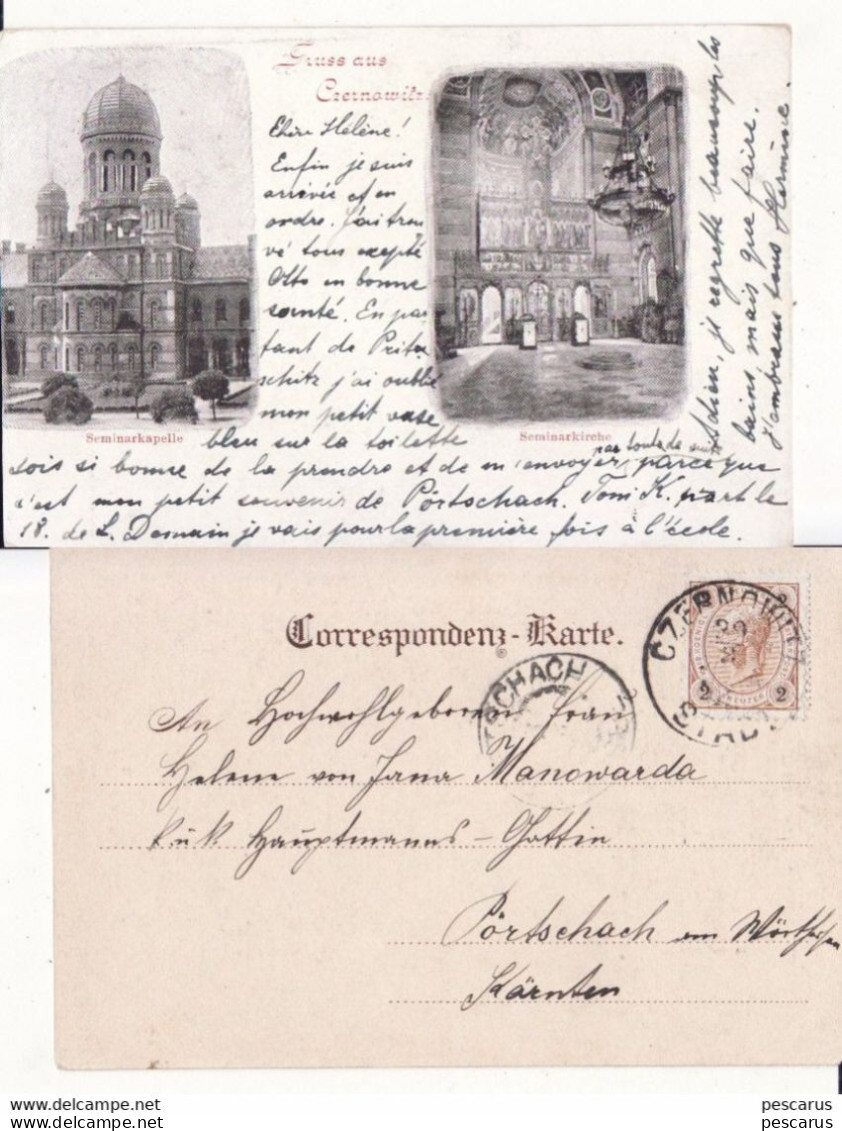 Gruss aus
Czernowitz.
Chère Hélène!
Enfin je suis
arrivée et en
ordre. J'ai trou
vé tous excepté
Otto en bonne
santé. En par
tant de Prita
schitz j'ai oublié
mon petit vase
bleu sur la toilette
sois si bonne de la prendre et de m'envoyer parceque
par toute de suite
c'est mon petit souvenir de Pörtschach. Toni K. part le
18. de L. Demain je vais pour la première fois à l'école.
Adieu, je regrette beaucoup les
bains, mais que faire.
J'embrasse tous Hermine.
Seminarkapelle
Seminarkirche
Correspondenz-Karte.
CZERNOWITZ
STADT
20
2
2
RTSCHACH
An Hochwohlgeboren Frau
Helene von Jana Manowarda
k. u. k. Hauptmanns-Gattin
Pörtschach am Wörthersee
Kärnten
pescarus
pescarus